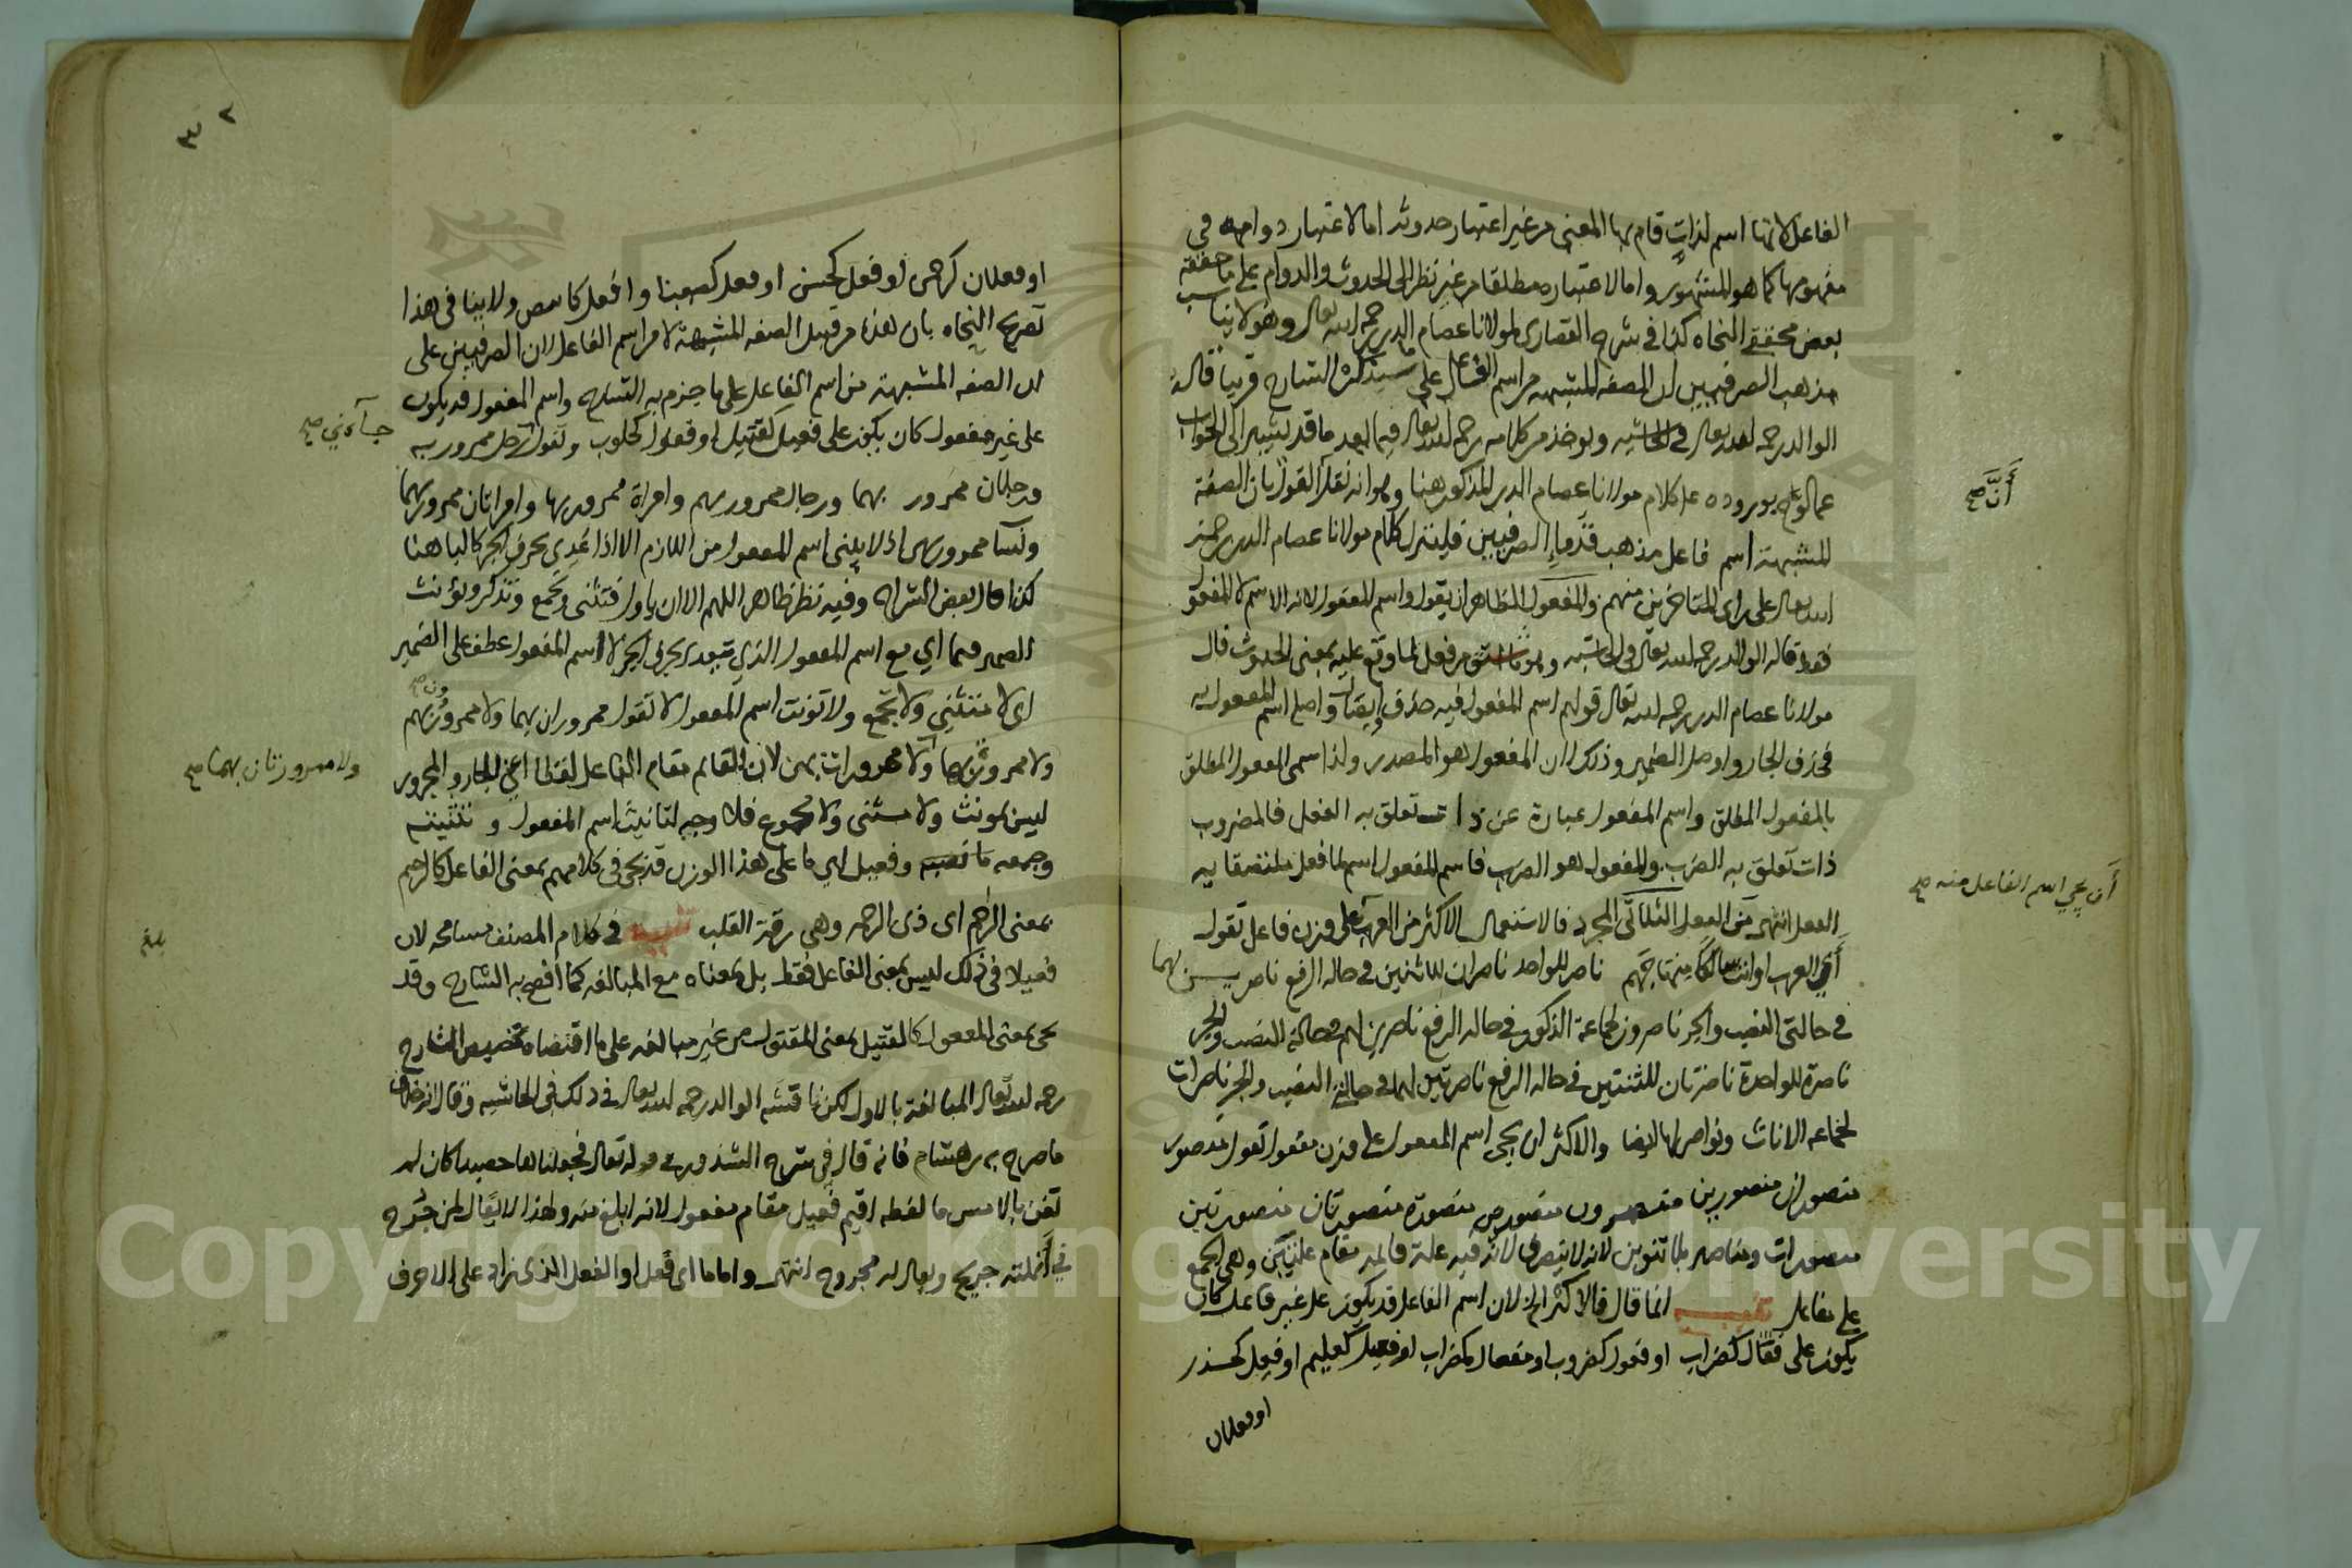 الفاعل لانها اسم لذات قام بها المعنى من غير اعتبار حدوثه اما لاعتبار دوامه في
مفهومها كما هو المشهور واما لاعتباره مطلقا من غير نظر الى الحدوث والدوام على ما حققه
بعض محققي النحاه كذا في شرح القصارى لمولانا عصام الدين رحمه الله تعالى وهو لا يناسب
مذهب الصرفيين ان الصفه المشبهه من اسم الفاعل على ما سيذكره الشارح قريبا قاله
الوالد رحمه الله تعالى في الحاشيه ويوخذ من كلامه رحمه الله تعالى فيما بعد ما قد يشير الى الجواب
عما لوح بوروده على كلام مولانا عصام الدين المذكور هنا وهو انه نقل القول بان الصفة
المشبهة اسم فاعل مذهب قدماء الصرفيين فلينزل كلام مولانا عصام الدين رحمه
الله تعالى على راى المتاخرين منهم والمفعول الظاهر ان يقول واسم المفعول لانه الاسم لا المفعول
فقط قاله الوالد رحمه الله تعالى في الحاشيه وهو ما اشتق من فعل لما وقع عليه بمعنى الحدوث قال
مولانا عصام الدين رحمه الله تعالى قولهم اسم المفعول فيه حذف وايصال واصله اسم المفعول به
فحذف الجار واوصل الضمير وذلك ان المفعول هو المصدر ولذا سمى المفعول المطلق
بالمفعول المطلق واسم المفعول عبارة عن ذات تعلق به الفعل فالمضروب
ذات تعلق به الضرب والمفعول هو الضرب فاسم المفعول اسم لما فعل ملتصقا به
الفعل انتهى من الفعل الثلاثي المجرد فالاستعمال الاكثر من العرب على وزن فاعل تقول
أي العرب او انت سالكا منهاجهم ناصر للواحد ناصران للاثنين في حاله الرفع ناصرين لهما
في حالتى النصب والجر ناصرون لجماعة الذكور في حاله الرفع ناصرين لهم في حالة النصب والجر
ناصرة للواحدة ناصرتان للثنتين في حاله الرفع ناصرتين لهما في حالتي النصب والجر ناصرات
لجماعه الاناث ونواصر لها ايضا والاكثر ان يجى اسم المفعول على وزن مفعول تقول منصور
منصوران منصورين منصورون منصورين منصورة منصورتان منصورتين
منصورات ومناصر بلا تنوين لانه لا ينصرف لانه فيه علة قائمه مقام علتين وهى الجمع
على مفاعل تنبيه انما قال فالاكثر الخ لان اسم الفاعل قد يكون على غير فاعل كان
يكون على فعال كضراب او فعول كضروب او مفعال كمضراب او فعيل كعليم او فعل كحذر
او فعلان
أَنَّ صح
أن يجي اسم الفاعل منه صح
٢
٣
او فعلان كرحمن او فعل كحسن او فعل كصعب او افعل كابيض ولا ينافى هذا
تصريح النحاه بان هذه من قبيل الصفه المشبهة لا من اسم الفاعل لان الصرفيين على
ان الصفه المشبهة من اسم الفاعل على ما جزم به الشارح واسم المفعول قد يكون
على غير مفعول كان يكون على فعيل كقتيل او فعول كحلوب وتقول رجل ممرور به
ورجلان ممرور بهما ورجال ممرور بهم وامراة ممرور بها وامراتان ممرور بهما
ونسا ممرور بهن اذ لا يبنى اسم المفعول من اللازم الا اذا عدي بحرف الجر كالبا هنا
كذا قال بعض الشراح وفيه نظر ظاهر اللهم الا ان ياول فتثنى وتجمع وتذكر وتؤنث
الضمير فيما اي مع اسم المفعول الذي يتعدى بحرف الجر لا اسم المفعول عطف على الضمير
اى لا تثني ولا تجمع ولا تونث اسم المفعول لا تقول ممروران بهما ولا ممرورون بهم
ولا ممرورة بها ولا ممرورات بهن لان القائم مقام الفاعل لفظا اعني الجار والمجرور
ليس بمونث ولا مثنى ولا مجموع فلا وجه لتانيث اسم المفعول وتثنيته
وجمعه وفعيل اي ما على هذا الوزن قد يجى في كلامهم بمعنى الفاعل كالرحيم
بمعنى الراحم اى ذى الرحمه وهى رقة القلب تنبيه في كلام المصنف مسامحه لان
فعيلا في ذلك ليس بمعنى الفاعل فقط بل بمعناه مع المبالغه كما أفصح به الشارح وقد
يجى بمعنى المفعول كالقتيل بمعنى المقتول من غير مبالغه على ما اقتضاه تخصيص الشارح
رحمه الله تعالى المبالغة بالاول لكن ناقشه الوالد رحمه الله تعالى في ذلك في الحاشيه وقال انه خلاف
ما صرح به بن هشام فانه قال في شرح الشذور في قوله تعالى فجعلناها حصيدا كان لم
تغن بالامس ما لفظه اقيم فعيل مقام مفعول لانه ابلغ منه ولهذا لا يقال لمن جُرح
في أنملته جريح ويقال له مجروح انتهى واما ما اى فعل او الفعل الذى زاد على الاحرف
جآءني صح
ون صح
ولا ممرورتان بهما صح
بلغ